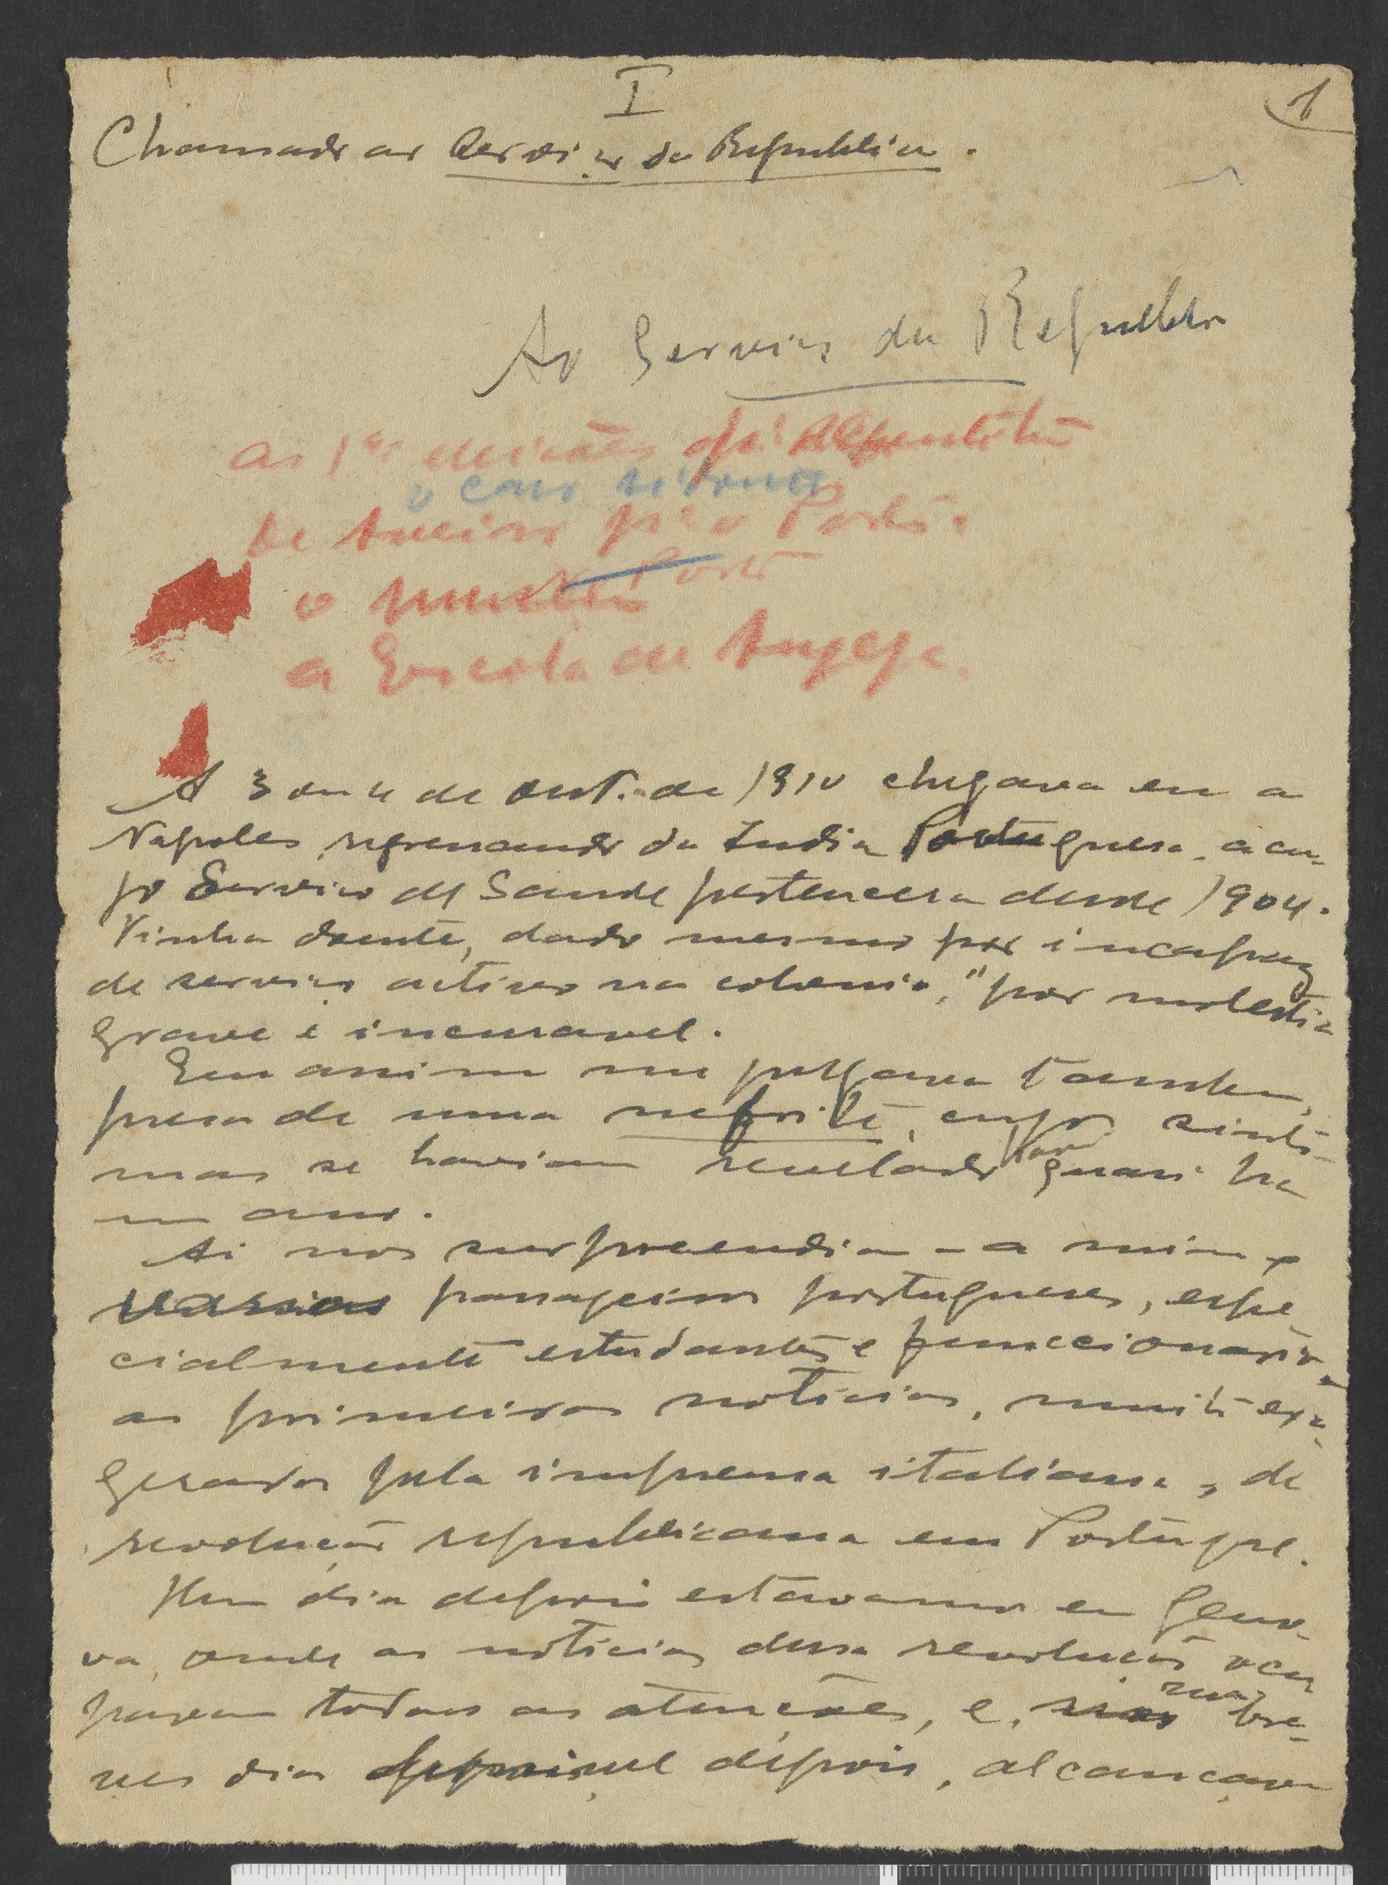 I
1
Chamado ao Serviço da Republica.
Ao Serviço da Republica
As 1as eleições
o caso
De Aveiro p.ª o Porto
o
a Escola de Angeja.
A 3 ou 4 de out. de 1910 chegava eu a
Napoles, regressando da India Portuguesa, a cu-
jo Serviço de Saude pertencera desde 1904.
Vinha doente, dado mesmo por incapaz
de serviço activo na colonia, "por molestia
grave e incuravel.
Eu assim me julgava tambem,
presa de uma nefrite, cujos sinto-
mas se haviam revelado quasi ha
um ano.
Ai nos surpreendia - a mim e
varios passageiros portugueses, espe
cialmente estudantes e funccionarios,
as primeiras noticias, muito exa-
geradas pela imprensa italiana, da
revolução republicana em Portugal.
Um dia depois estavamos em Geno-
va, onde as noticias dessa revolução ocu
pavam todas as atenções, e, bre-
ves dias depois, alcançava